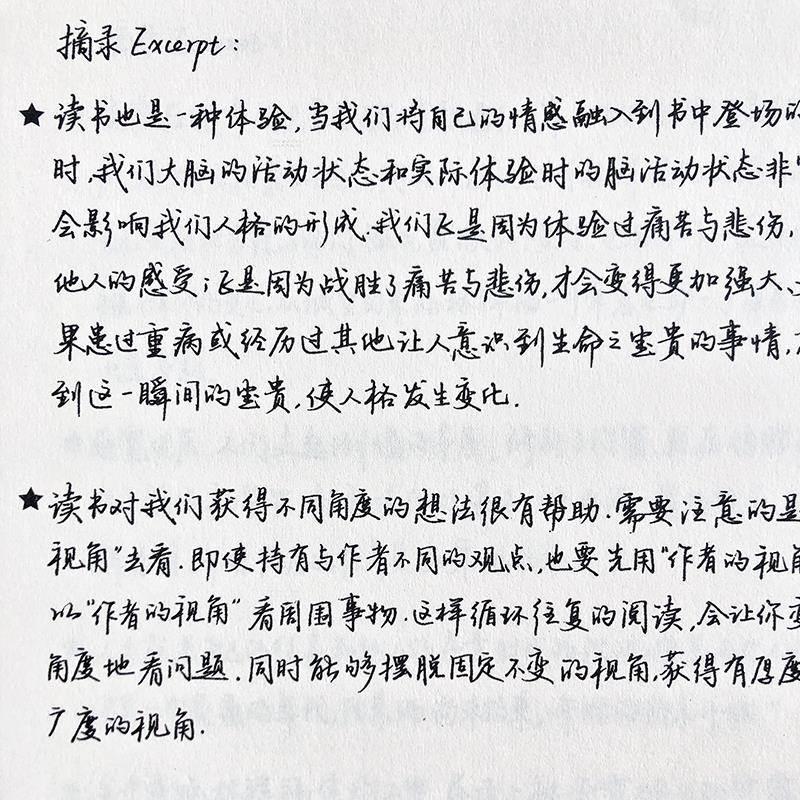 摘录 Excerpt:
★ 读书也是一种体验,当我们将自己的情感融入到书中登场的
时,我们大脑的活动状态和实际体验时的脑活动状态非
会影响我们人格的形成.我们正是因为体验过痛苦与悲伤,
他人的感受;正是因为战胜了痛苦与悲伤,才会变得更加强大、
果患过重病或经历过其他让人意识到生命之宝贵的事情,
到这一瞬间的宝贵,使人格发生变化.
★ 读书对我们获得不同角度的想法很有帮助.需要注意的是
视角"去看.即使持有与作者不同的观点,也要先用"作者的视角
以"作者的视角"看周围事物.这样循环往复的阅读,会让你变
角度地看问题.同时能够摆脱固定不变的视角,获得有厚度
广度的视角.